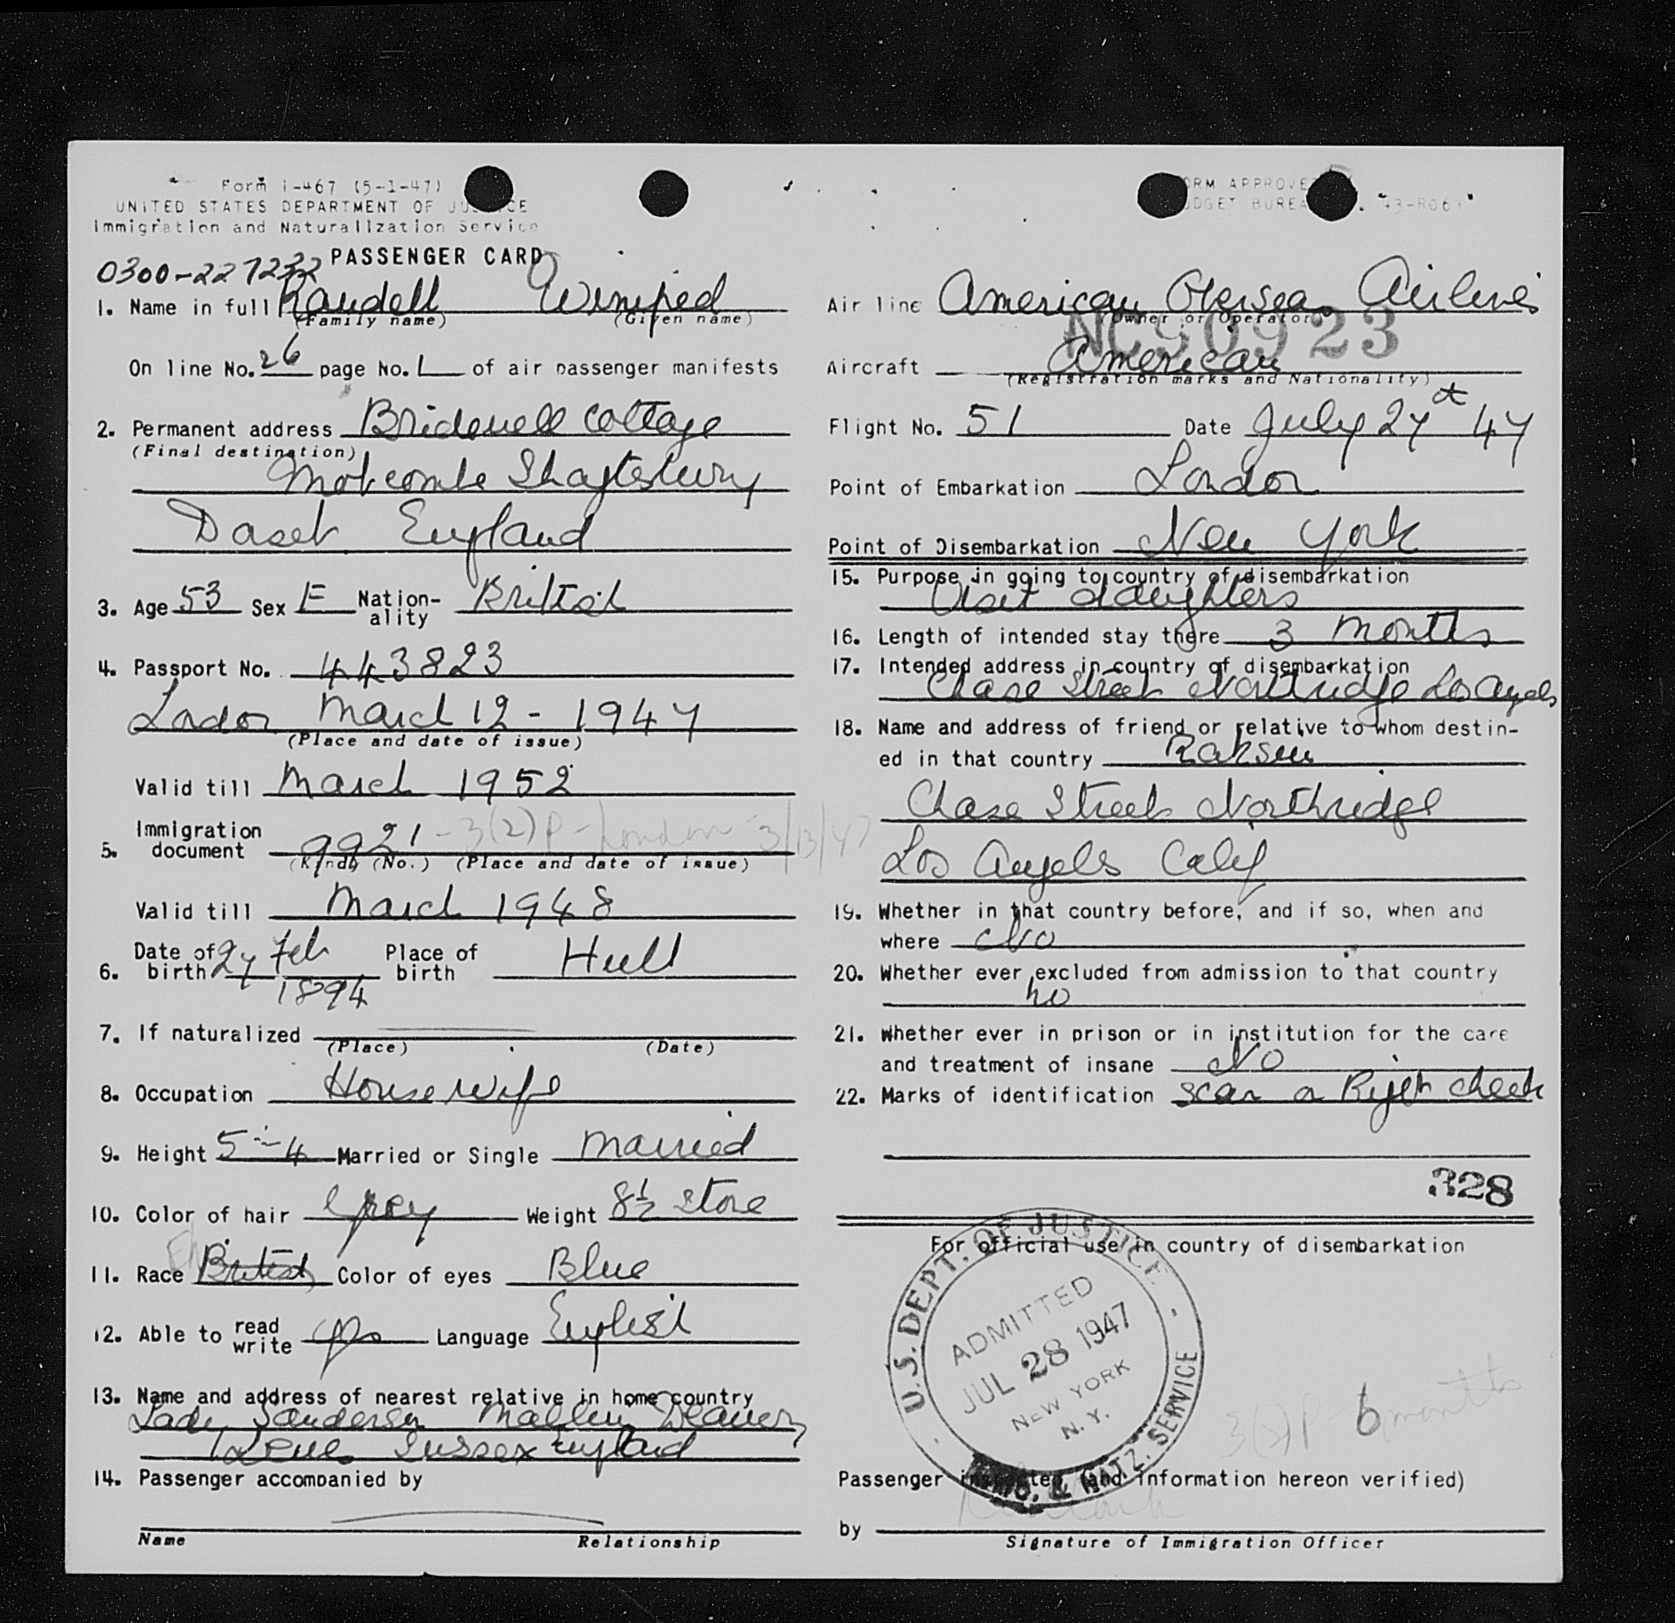 Form I-467 (5-1-47)
UNITED STATES DEPARTMENT OF JUSTICE
Immigration and Naturalization Service
PASSENGER CARD
0300-227232
1. Name in full Randell Winifred
(Family name) (Given name)
On line No. 26 page No. 1 of air passenger manifests
2. Permanent address Bridewell Cottage
(Final destination)
Motcombe Shaftesbury
Dorset England
3. Age 53 Sex F Nation-ality British
4. Passport No. 443823
London March 12 - 1947
(Place and date of issue)
Valid till March 1952
5. Immigration document 9921 - 3(2)P - London 3/13/47
(Kind) (No.) (Place and date of issue)
Valid till March 1948
6. Date of birth 27 Feb 1894 Place of birth Hull
7. If naturalized
(Place) (Date)
8. Occupation Housewife
9. Height 5-4 Married or Single Married
10. Color of hair Grey Weight 8½ stone
11. Race British Color of eyes Blue
12. Able to read write yes Language English
13. Name and address of nearest relative in home country
Lady Sanderson
Sussex England
14. Passenger accompanied by
Name Relationship
FORM APPROVED
BUDGET BUREAU
Air line American Overseas Airlines
(Owner or Operator)
NC90923
Aircraft American
(Registration marks and Nationality)
Flight No. 51 Date July 27th 47
Point of Embarkation London
Point of Disembarkation New York
15. Purpose in going to country of disembarkation
Visit daughters
16. Length of intended stay there 3 months
17. Intended address in country of disembarkation
Chase Street Northridge Los Angels
18. Name and address of friend or relative to whom destin-
ed in that country
Chase Street Northridge
Los Angels Calif
19. Whether in that country before, and if so, when and
where No
20. Whether ever excluded from admission to that country
no
21. Whether ever in prison or in institution for the care
and treatment of insane No
22. Marks of identification scar on Right cheek
328
For official use in country of disembarkation
U.S. DEPT. OF JUSTICE
ADMITTED
JUL 28 1947
NEW YORK
N.Y.
IMMIG. & NATZ. SERVICE
3(2)P 6 months
Passenger inspected (and information hereon verified)
by
Signature of Immigration Officer